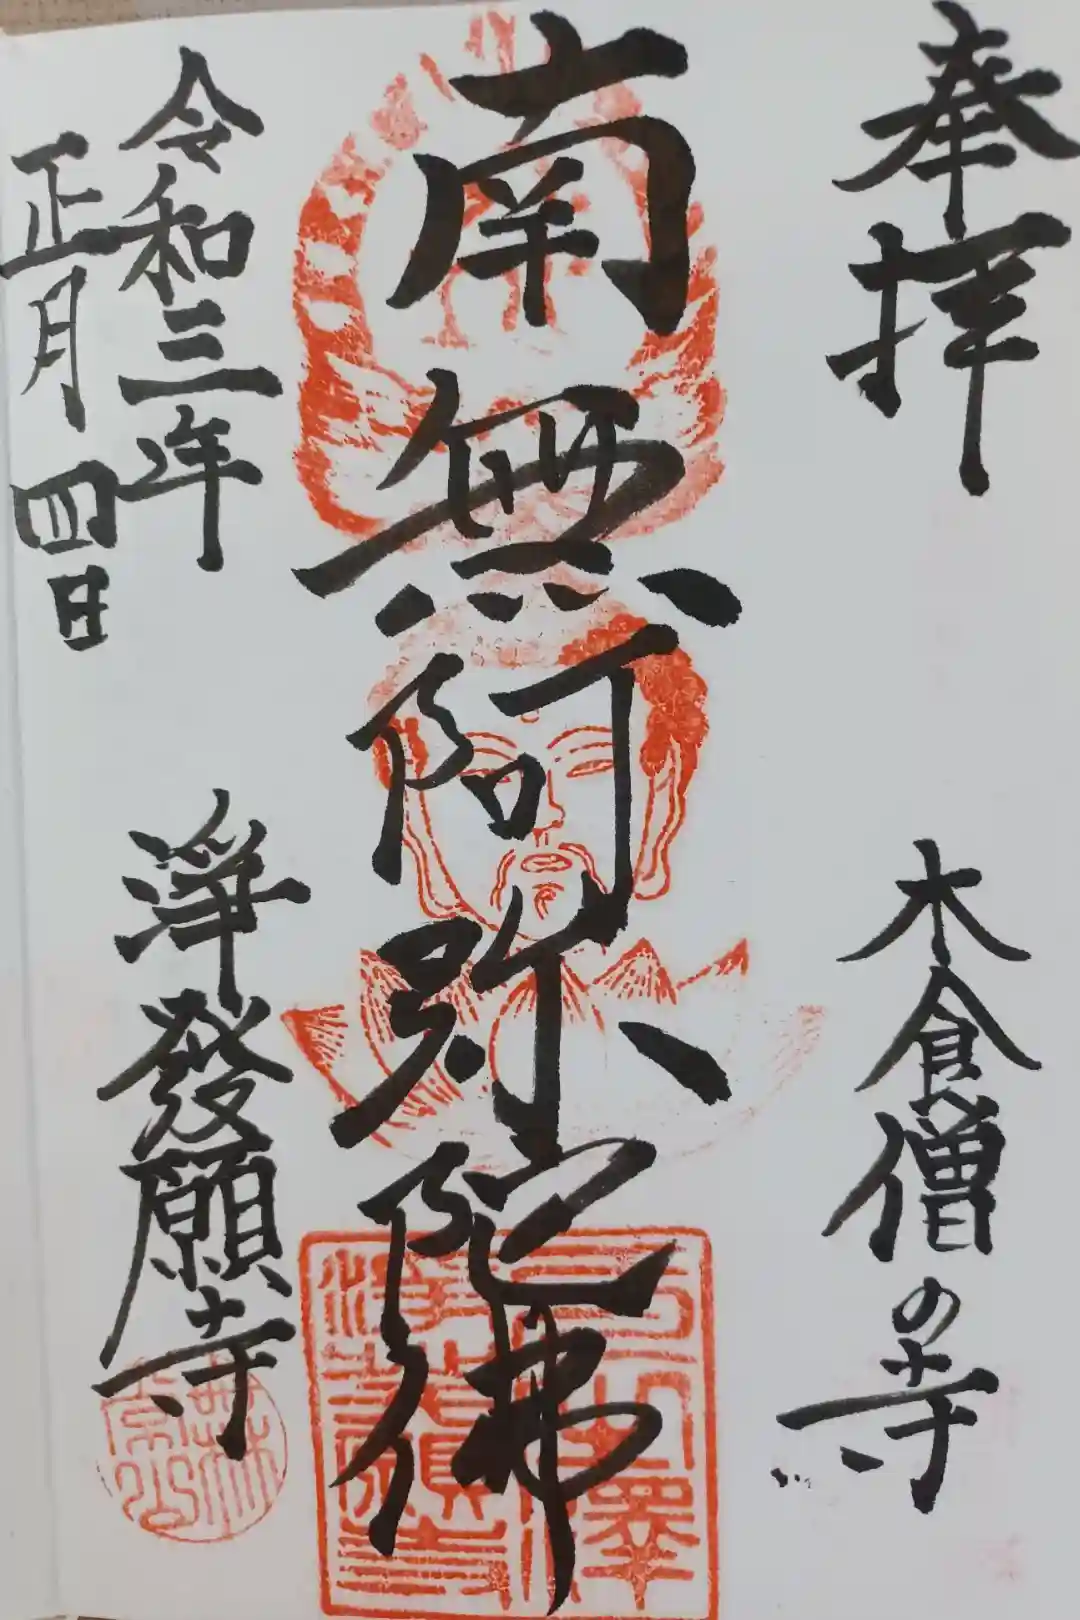 奉拝
木食僧の寺
南無阿弥陀佛
令和三年
正月四日
淨發願寺